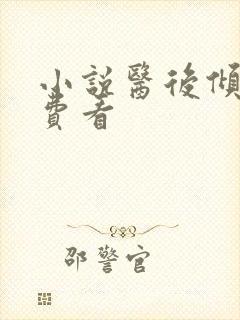 小說醫後傾
費看
邵警官